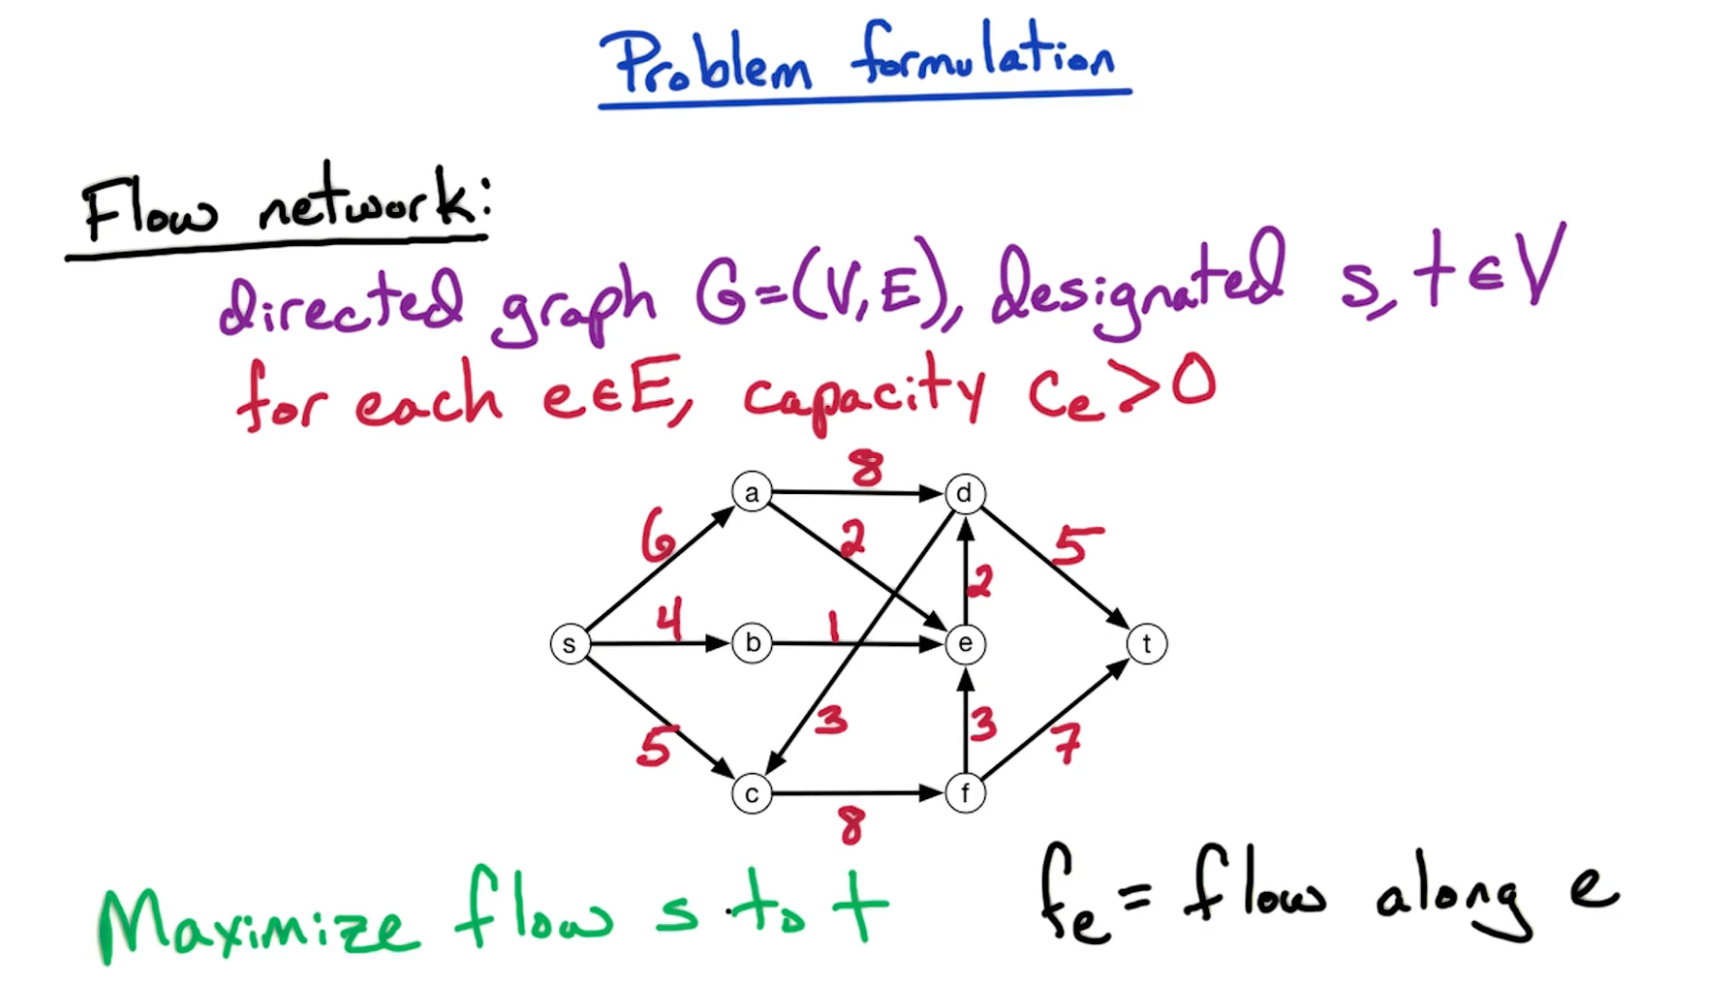 Problem formulation
Flow network:
directed graph G=(V,E), designated s,t∈V
for each e∈E, capacity cₑ>0
8
a d
6 2 5
2
4 1
s b e t
3 3
5 7
c f
8
Maximize flow s to t fₑ = flow along e